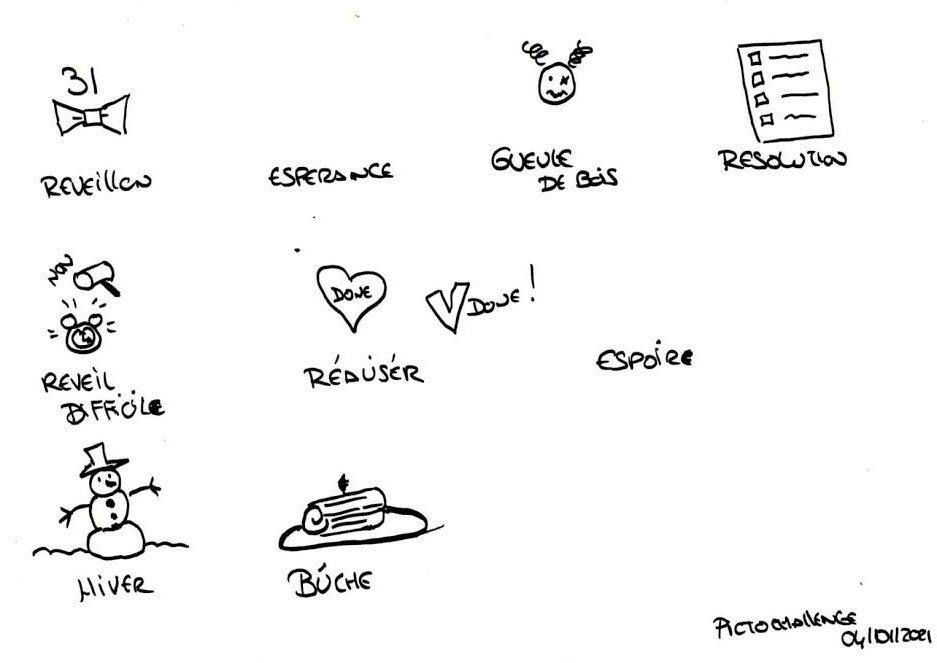 31
REVEILLON
ESPERANCE
GUEULE
DE BOIS
RESOLUTION
NON
REVEIL
DIFFICILE
DONE
DONE!
RÉALISER
ESPOIRE
HIVER
BÛCHE
PICTOCHALLENGE
04/01/2021